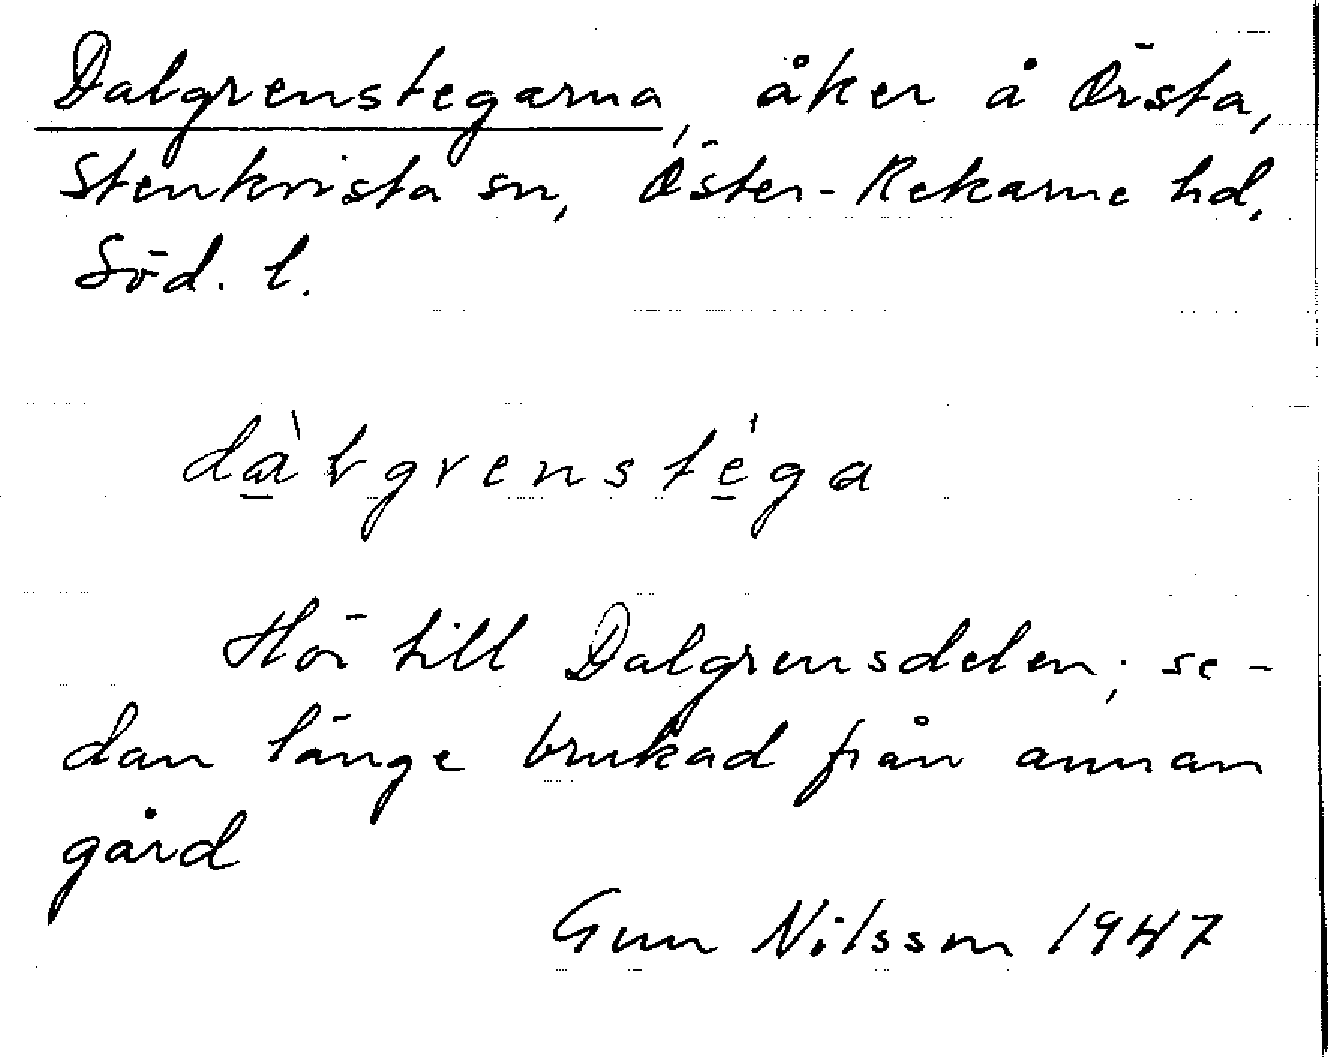 Dalgrenstegarna, åker å Örsta,
Stenkvista sn, Öster-Rekarne hd.
Söd. l.
da̠̍lgrenste̠̍ga
Hör till Dalgrensdelen; se-
dan länge brukad från annan
gård
Gun Nilsson 1947